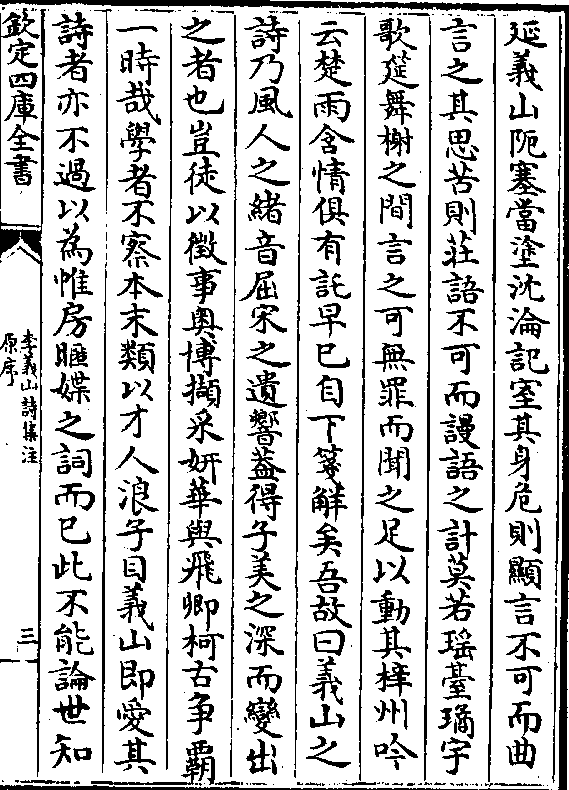 延義山阨塞當塗沈淪記室其身危則顯言不可而曲
言之其思苦則莊語不可而謾語之計莫若瑶臺璚宇
歌筵舞榭之間言之可無罪而聞之足以動其梓州吟
云楚雨含情俱有託早已自下箋觧矣吾故曰義山之
詩乃風人之緒音屈宋之遺響葢得子美之深而變出
之者也豈徒以徵事奥博擷采妍華與飛卿柯古争霸
一時哉學者不察本末類以才人浪子目義山即愛其
詩者亦不過以為帷房暱媟之詞而已此不能論世知
欽定四庫全書
李義山詩集注
原序
三